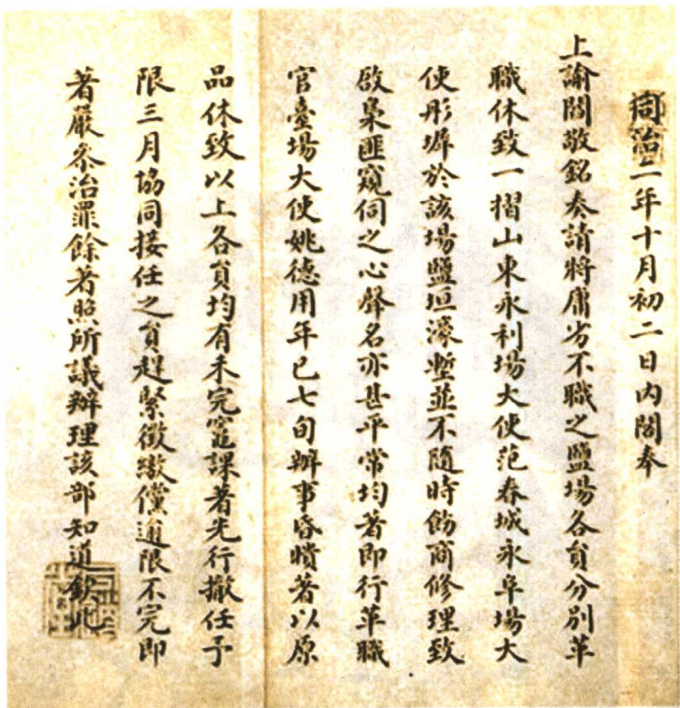 同治二年十月初二日内閣奉
上諭閻敬銘奏請將庸劣不職之鹽場各員分別革
職休致一摺山東永利場大使范春城永阜場大
使彤墀於該場鹽垣濠塹並不隨時飭商修理致
啟梟匪窺伺之心聲名亦甚平常均著即行革職
官臺場大使姚德用年已七旬辦事昏憒著以原
品休致以上各員均有未完竈課著先行撤任予
限三月協同接任之員趕緊徵繳儻逾限不完即
著嚴叅治罪餘著照所議辦理該部知道欽此